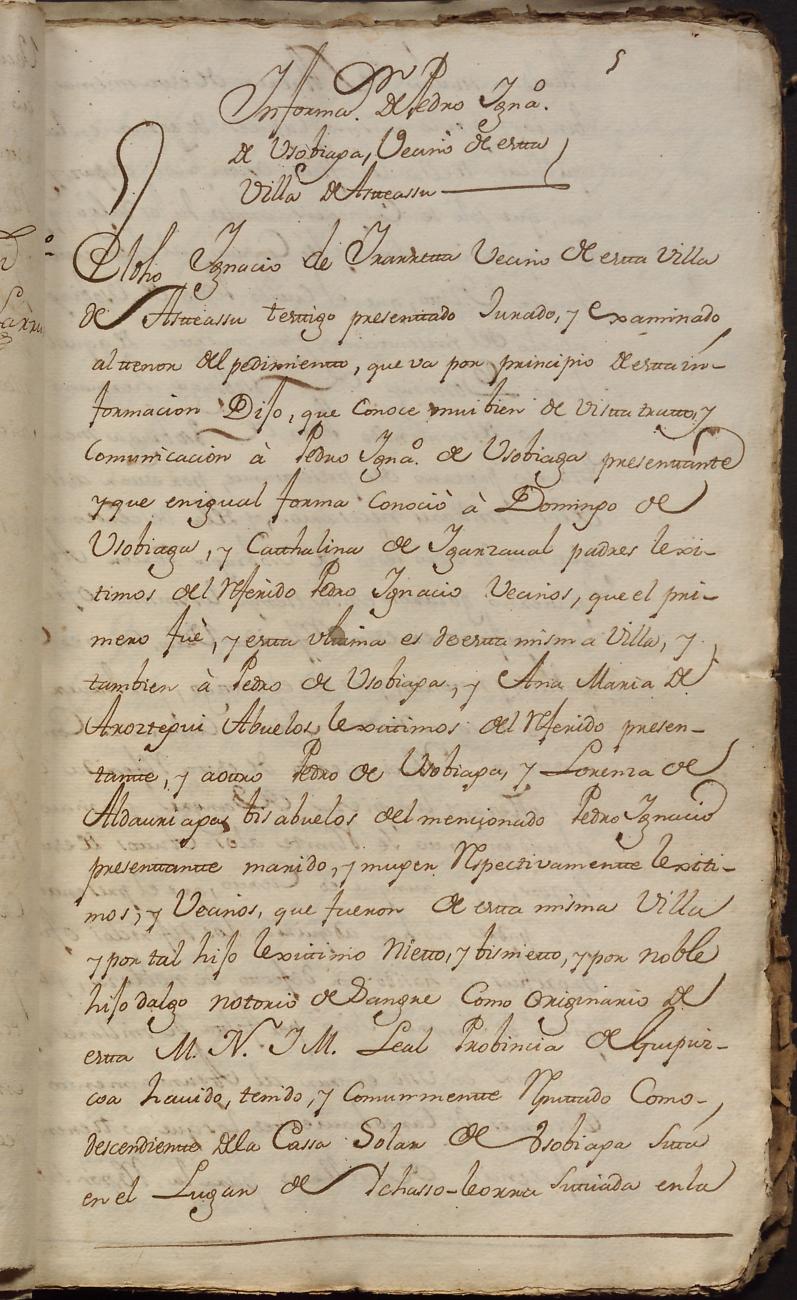 5
Informaⁿ. De Pedro Ignº.
de Usobiaga, Vecino de estta
Villa de Asteassu
El dho Ignacio de Irarretta Vecino de estta villa
de Asteassu testtigo presenttado Jurado, y examinado
al ttenor del pedimientto, que va por principio de estta in-
formacion Dijo, que conoce mui bien de vistta tratto, y
Comunicacion à Pedro Ignº. de Usobiaga presenttante
y que en igual forma conociò à Domingo de
Usobiaga, y Catthalina de Iganzaval padres lexi-
timos del Referido Pedro Ignacio Vecinos, que el pri-
mero fuè, y estta ultima es de estta misma Villa, y
tambien à Pedro de Usobiaga, y Ana Maria de
Aroztegui Abuelos lexitimos del Referido presen-
tantte, y a ottro Pedro de Usobiaga, y Lorenza de
Aldauriaga bisabuelos del mencionado Pedro Ignacio
presenttantte marido, y muger Respectivamentte lexiti-
mos, y Vecinos, que fueron de estta misma Villa
y por tal hijo lexitimo nietto, y bisnietto, y por noble
hijo dalgo notorio de Sangre Como Originario de
estta M. N. I M. Leal Probincia de Guipuz-
coa havido, tenido, y comunmentte Reputtado Como
descendientte de la Cassa Solar de Usobiaga sitta
en el Lugar de Ichasso-leorra sittuada en la